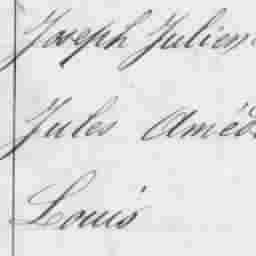 Joseph Julien
Jules Améd
Louis